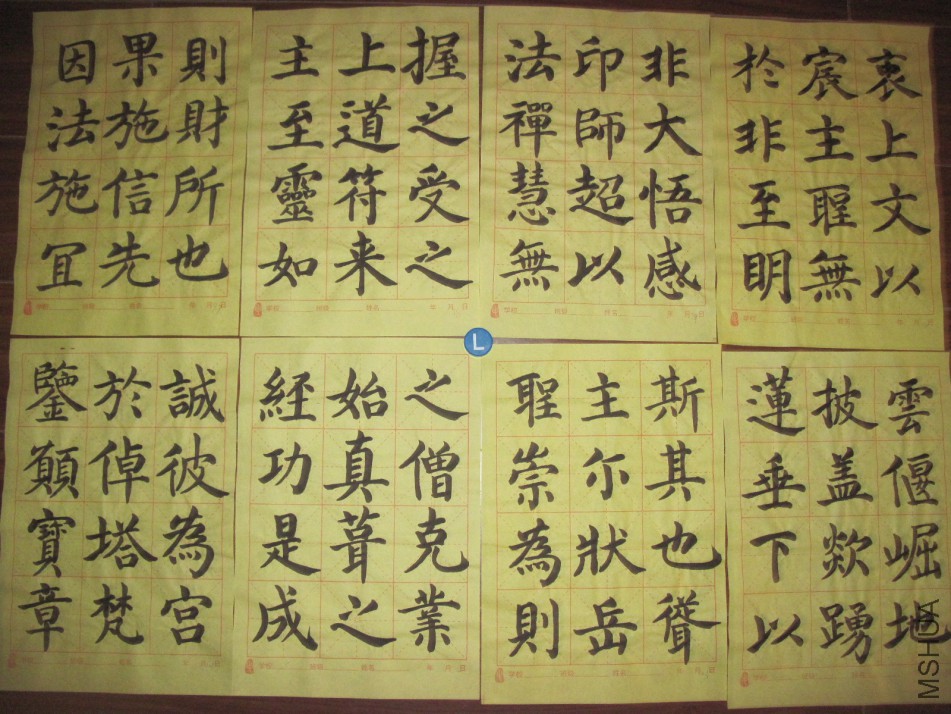 因果則
法施財
施信所
冝先也
主上握
至道之
靈符受
如来之
法印非
禪師大
慧超悟
無以感
於宸衷
非主上
至聖文
明無以
L
鑒於誠
顛倬彼
寶塔為
章梵宮
経始之
功真僧
是葺克
成之業
聖主斯
崇尓其
為狀也
則岳聳
蓮披雲
垂盖偃
下欻崛
以踴地